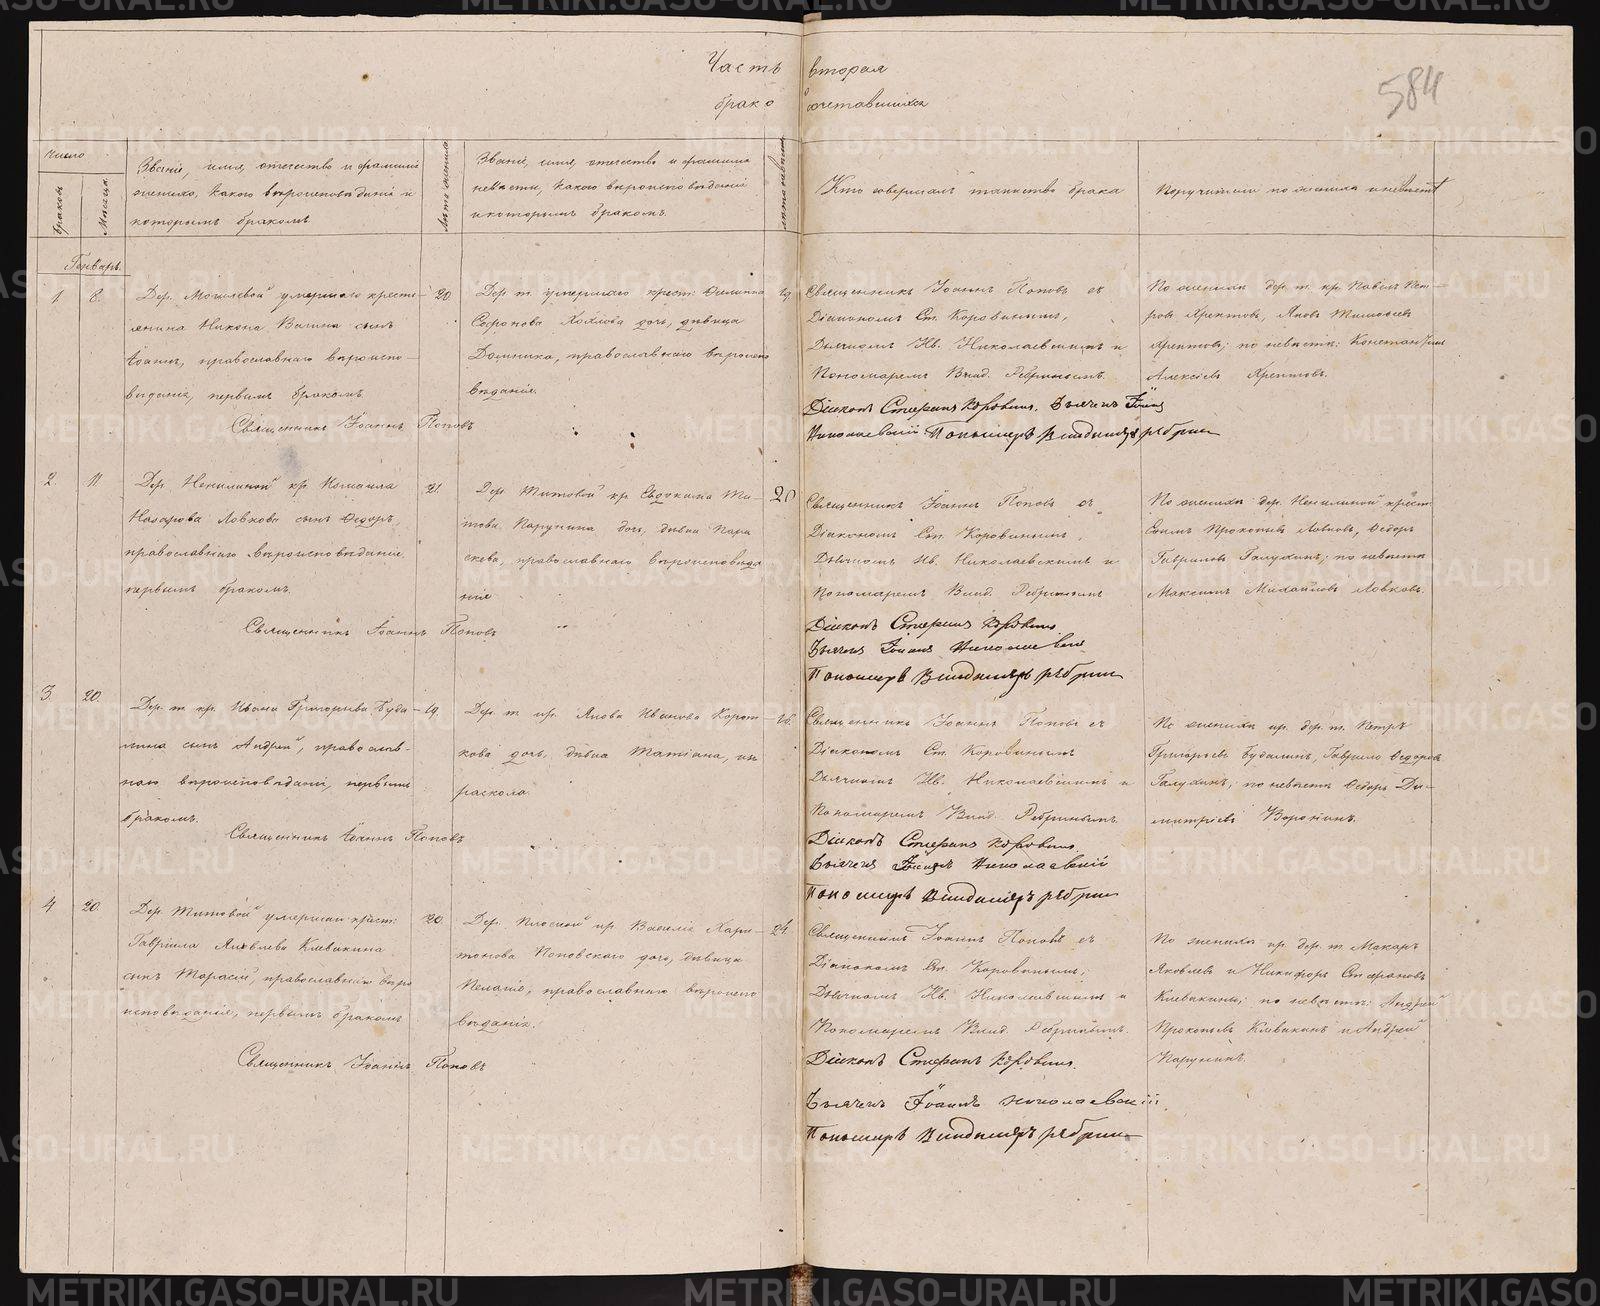 Часть вторая
о бракосочетавшихся
584
Число
Браковъ
Месяцъ
Званіе, имя, отчество и фамилія
жениха, какого вероисповеданія и
которымъ бракомъ
Лета жениха
Званіе, имя, отчество и фамилія
невесты, какого вероисповеданія
и которымъ бракомъ.
Лета невесты
Кто совершалъ таинство брака
Поручители по жениха и невесте
Генварь.
1. 8.
Дер. умершаго кресть-
янина Никона Вагина сынъ
Іоаннъ, православнаго вероиспо-
веданія, первымъ бракомъ.
Священникъ Іоаннъ Поповъ
20
Дер. т. умершаго крест. Филиппа
Софронова дочь, девица
Домника, православнаго вероиспо
веданія.
19.
Священникъ Іоаннъ Поповъ съ
Діакономъ Ст. Коровинымъ,
Дьячкомъ Ив. Николаевскимъ и
Пономаремъ Влад. Ребринымъ.
Діаконъ Стефанъ Коровинъ. Дьячекъ Іоаннъ
Николаевскій Пономарь Владимиръ Ребринъ
По женихе дер. т. кр. Павелъ Пет-
ровъ Хрептовъ, Яковъ Тимофеевъ
Хрептовъ; по невесте: Константинъ
Алексеевъ Хрептовъ.
2. 11.
Дер. кр. Измаила
Назарова Ловкова сынъ Федоръ,
православнаго вероисповеданія,
первымъ бракомъ.
Священникъ Іоаннъ Поповъ
21.
Дер. Титовой кр. Евдокима Ти-
това Парунина дочь, девица Пара
скева, православнаго вероисповеда
нія
20
Священникъ Іоаннъ Поповъ съ
Діакономъ Ст. Коровинымъ,
Дьячкомъ Ив. Николаевскимъ и
Пономаремъ Влад. Ребринымъ
Діаконъ Стефанъ Коровинъ
Дьячекъ Іоаннъ Николаевскій
Пономарь Владимиръ Ребринъ
По женихе дер. крест.
Прокопьевъ Ловковъ, Федоръ
Гавриловъ Галухинъ; по невесте
Максимъ Михайловъ Ловковъ.
3. 20.
Дер. т. кр. Ивана Григорьева Буда-
лина сынъ Андрей, православ-
наго вероисповеданія, первымъ
бракомъ.
Священникъ Іоаннъ Поповъ
19.
Дер. т. кр. Якова Иванова Корот-
кова дочь, девица Татіана, изъ
раскола.
Священникъ Іоаннъ Поповъ съ
Діакономъ Ст. Коровинымъ
Дьячкомъ Ив. Николаевскимъ и
Пономаремъ Влад. Ребринымъ.
Діаконъ Стефанъ Коровинъ.
Дьячекъ Іоаннъ Николаевскій
Пономарь Владимиръ Ребринъ
По женихе кр. дер. т. Петръ
Григорьевъ Будалинъ, Гаврило Федоровъ
Галухинъ; по невесте Федоръ Ди-
митріевъ Воронинъ.
4 20.
Дер. Титовой умершаго крест.
Гавріила Яковлева Клевакина
сынъ Тарасій, православнаго веро
исповеданія, первымъ бракомъ
Священникъ Іоаннъ Поповъ
20.
Дер. Плоской кр. Василія Хари-
тонова Поповскаго дочь, девица
Пелагія, православнаго вероиспо
веданія.
24.
Священникъ Іоаннъ Поповъ съ
Діакономъ Ст. Коровинымъ,
Дьячкомъ Ив. Николаевскимъ и
Пономаремъ Влад. Ребринымъ.
Діаконъ Стефанъ Коровинъ.
Дьячекъ Іоаннъ Николаевскій.
Пономарь Владимиръ Ребринъ
По жениха кр. дер. т. Макаръ
Яковлевъ и Никифоръ Стефановъ
Клевакины; по невесте: Андрей
Прокопьевъ Клевакинъ и Андрей
Парунинъ.
METRIKI.GASO-URAL.RU